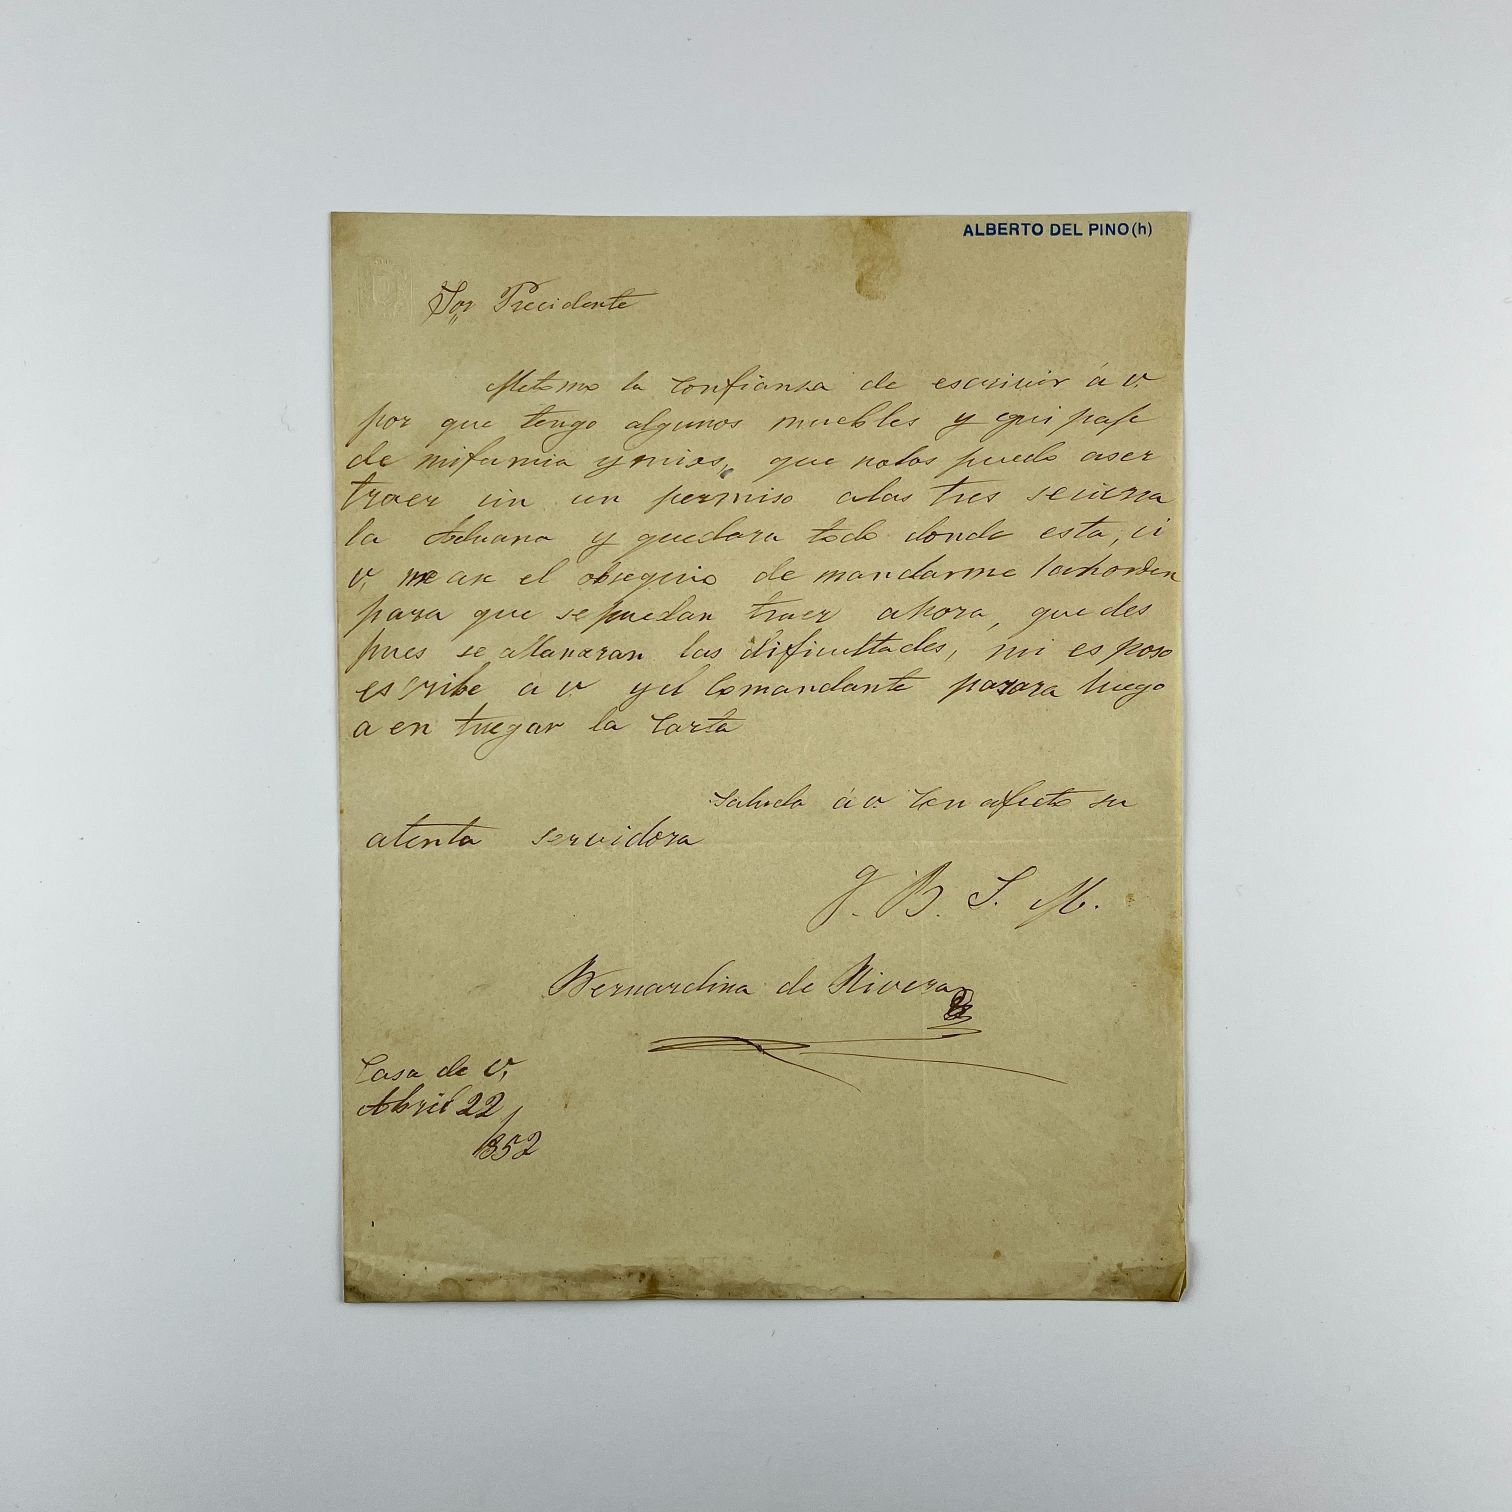 ALBERTO DEL PINO (h)
Sor Precidente
Metomo la confiansa de escrivir á v.
por que tengo algunos muebles y equi paje
de mifamia ymios, que nolos puedo aser
traer cin un permiso alas tres secierra
la Aduana y quedara todo donde esta, ci
v, me ase el obsequio de mandarme lahorden
para que sepuedan traer ahora, que des
pues se allanaran las dificultades, mi esposo
escribe a v. yel Comandante pasara luego
a en tregar la Carta
Saluda á v. con afecto su
atenta servidora
Q. B. S. M.
Bernardina de Rivera
Casa de V,
Abril 22
1852